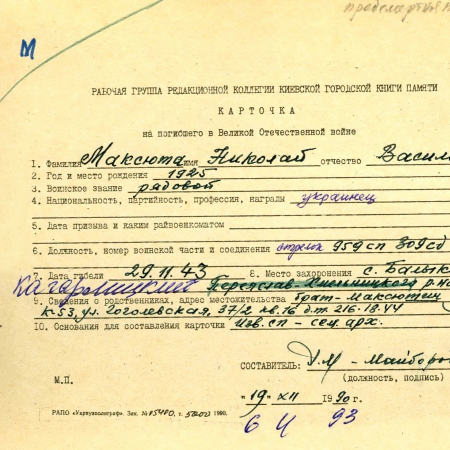 М
РАБОЧАЯ ГРУППА РЕДАКЦИОННОЙ КОЛЛЕГИИ КИЕВСКОЙ ГОРОДСКОЙ КНИГИ ПАМЯТИ
КАРТОЧКА
на погибшего в Великой Отечественной войне
1. Фамилия Максюта имя Николай отчество Васил
2. Год и место рождения 1925
3. Воинское звание рядовой
4. Национальность, партийность, профессия, награды украинец
5. Дата призыва и каким райвоенкоматом
6. Должность, номер воинской части и соединения стрелок 959 сп 309 сд
7. Дата гибели 29.11.43 8. Место захоронения с. Балык
Кагарлицкий Переяслав-Хмельницкого р-на
9. Сведения о родственниках, адрес местожительства брат-Максютец
К-53, ул. Гоголевская, 37/2 кв. 16 д.т. 216-18-44
10. Основания для составления карточки изв. сп - сец. арх.
СОСТАВИТЕЛЬ:
Майборо
(должность, подпись)
М.П.
"19" XII 1990 г.
РАПО «Укрвузполиграф». Зак. № 15480, т. 5000 1990.
6 4 93